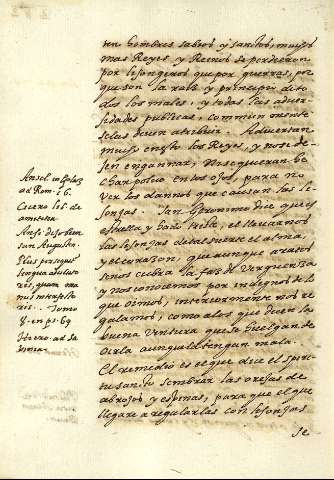 ten hombres sabios y santos, muchos
mas Reyes y Reinos se perdieron
por lisongeros que por guerras, por
que son la raiz y principio de to
dos los males, y todas las adver
sidades publicas, commun mente
se les deven atribuir. Adviertan
mucho en esto los Reyes, y no se de
jen engannar, ni se quieran
echar polvo en los ojos, para no
ver los dannos que causan las li
sonjas. San Geronimo dice que es
y el llevarnos
las lisonjas de tal suerte el alma,
y el corazon, que aunque a ratos
se nos cubra la faz de verguenza
y nos conocemos por indignos de lo
que oimos, interiormente nos re
galamos, como a los que dicen la
buena ventura que se huelgan de
oirla aunque la tengan mala.
El remedio es el que dice el spiri
tu santo sembrar las orejas de
abrojos y espinas, para que el que
llegare a regalarlas con lisonjas
se
Ansel. in
ad Rom. c. 6.
Cicero lib. de
amicitia
Ansi dijo bien
san Augustin.
Plus persequitur
lingua adulato
ris, quam ma
nus interfecto
ris. Tomo
8. in ps. 69
Hiero. ad